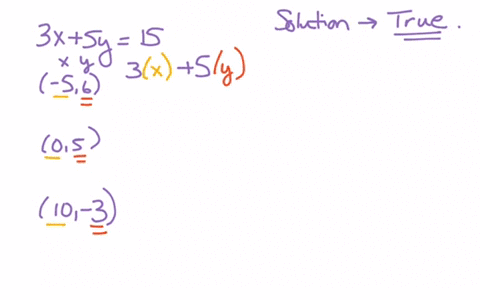 Solution → True.
3x+5y=15
x y
3(x)+5(y)
(-5,6)
(0,5)
(10,-3)